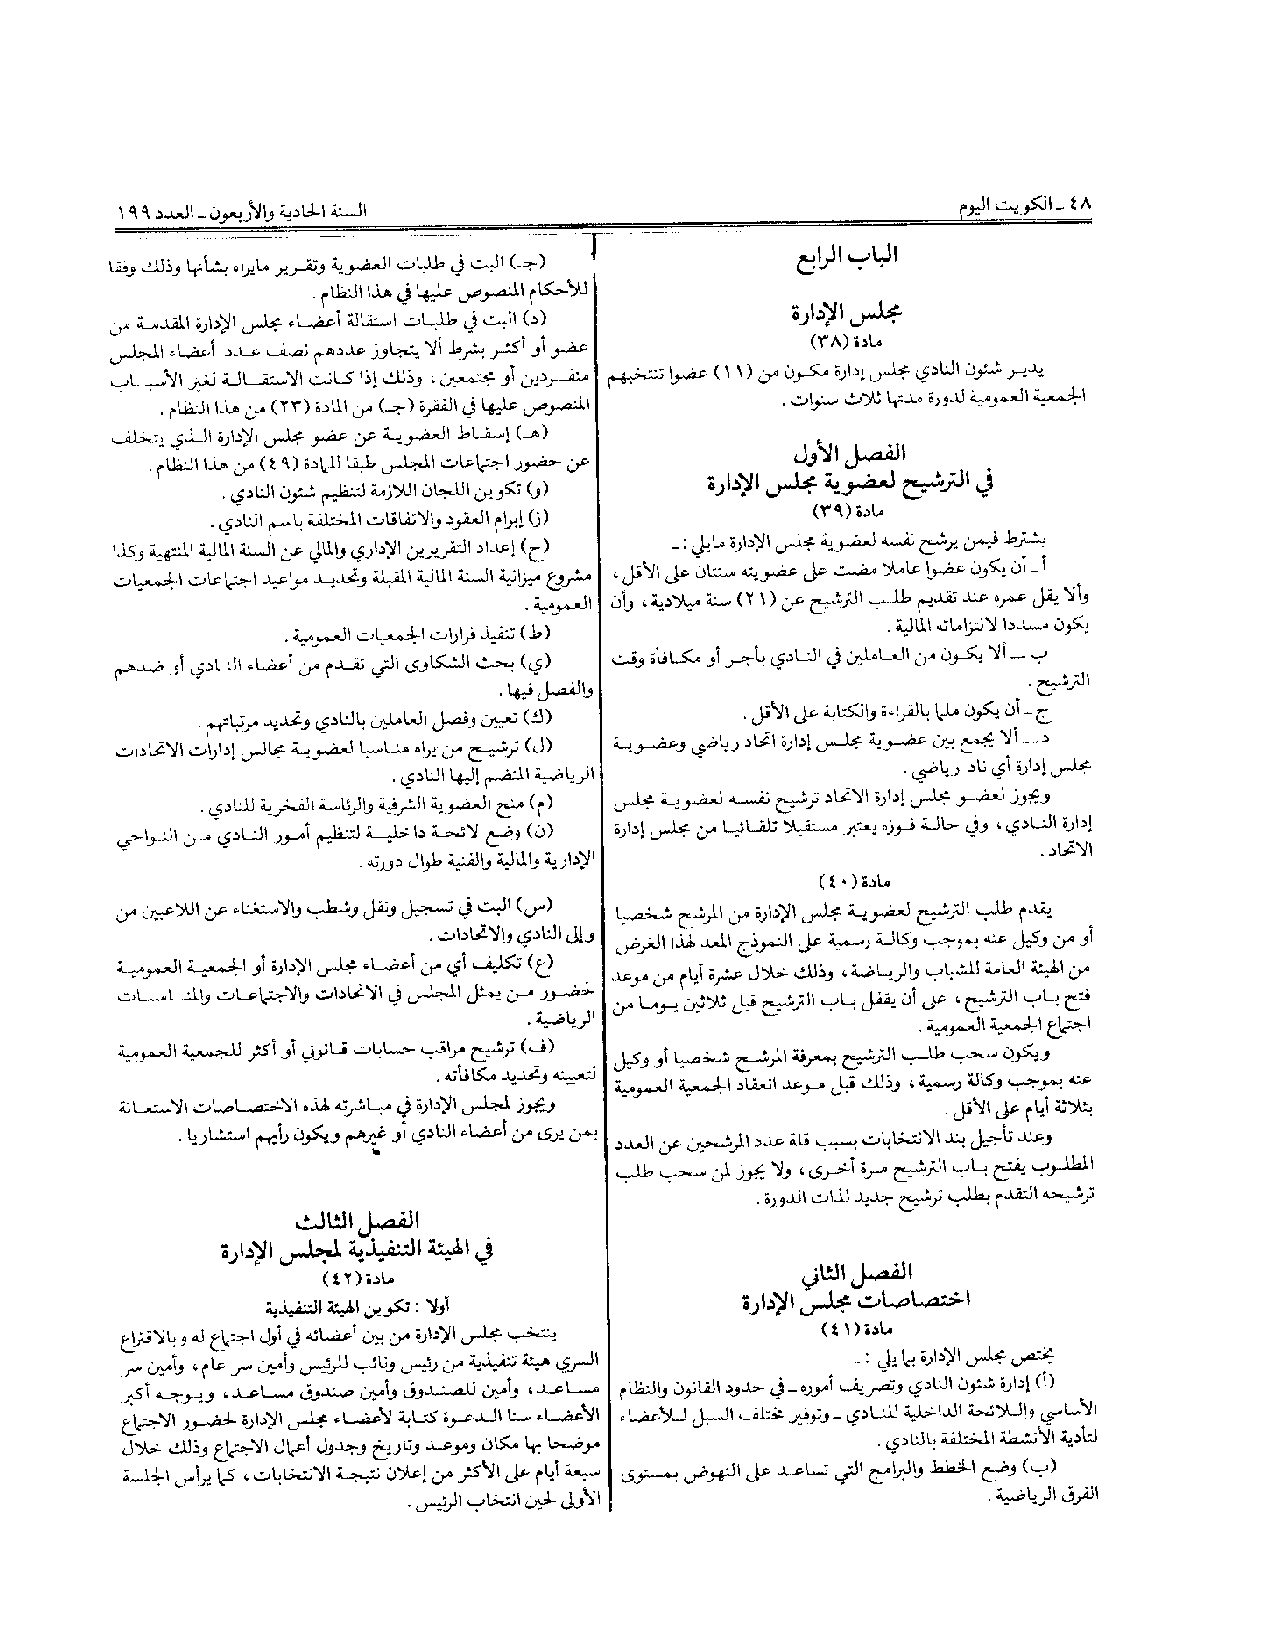 ٤٨ - الكويت اليوم
السنة الحادية والأربعون - العدد ١٩٩
الباب الرابع
مجلس الإدارة
مادة (٣٨)
يدير شئون النادي مجلس إدارة مكون من (١١) عضوا تنتخبهم
الجمعية العمومية لدورة مدتها ثلاث سنوات .
الفصل الأول
في الترشيح لعضوية مجلس الإدارة
مادة (٣٩)
يشترط فيمن يرشح نفسه لعضوية مجلس الإدارة مايلي : -
أ - أن يكون عضوا عاملا مضت على عضويته سنتان على الأقل ،
وألا يقل عمره عند تقديم طلب الترشيح عن (٢١) سنة ميلادية ، وأن
يكون مسددا لالتزاماته المالية .
ب - ألا يكون من العاملين في النادي بأجر أو مكافأة وقت
الترشيح .
ج - أن يكون ملما بالقراءة والكتابة على الأقل .
د - ألا يجمع بين عضوية مجلس إدارة اتحاد رياضي وعضوية
مجلس إدارة أي ناد رياضي .
ويجوز لعضو مجلس إدارة الاتحاد ترشيح نفسه لعضوية مجلس
إدارة النادي ، وفي حالة فوزه يعتبر مستقيلا تلقائيا من مجلس إدارة
الاتحاد .
مادة (٤٠)
يقدم طلب الترشيح لعضوية مجلس الإدارة من المرشح شخصيا
أو من وكيل عنه بموجب وكالة رسمية على النموذج المعد لهذا الغرض
من الهيئة العامة للشباب والرياضة ، وذلك خلال عشرة أيام من موعد
فتح باب الترشيح ، على أن يقفل باب الترشيح قبل ثلاثين يوما من
اجتماع الجمعية العمومية .
ويكون سحب طلب الترشيح بمعرفة المرشح شخصيا أو وكيل
عنه بموجب وكالة رسمية ، وذلك قبل موعد انعقاد الجمعية العمومية
بثلاثة أيام على الأقل .
وعند تأجيل بند الانتخابات بسبب قلة عدد المرشحين عن العدد
المطلوب يفتح باب الترشيح مرة أخرى ، ولا يجوز لمن سحب طلب
ترشيحه التقدم بطلب ترشيح جديد لذات الدورة .
الفصل الثاني
اختصاصات مجلس الإدارة
مادة (٤١)
يختص مجلس الإدارة بما يلي : -
(أ) إدارة شئون النادي وتصريف أموره - في حدود القانون والنظام
الأساسي واللائحة الداخلية للنادي - وتوفير مختلف السبل للأعضاء
لتأدية الأنشطة المختلفة بالنادي .
(ب) وضع الخطط والبرامج التي تساعد على النهوض بمستوى
الفرق الرياضية .
(جـ) البت في طلبات العضوية وتقرير مايراه بشأنها وذلك وفقا
للأحكام المنصوص عليها في هذا النظام .
(د) البت في طلبات استقالة أعضاء مجلس الإدارة المقدمة من
عضو أو أكثر بشرط ألا يتجاوز عددهم نصف عدد أعضاء المجلس
منفردين أو مجتمعين ، وذلك إذا كانت الاستقالة لغير الأسباب
المنصوص عليها في الفقرة (جـ) من المادة (٢٣) من هذا النظام .
(هـ) إسقاط العضوية عن عضو مجلس الإدارة الذي يتخلف
عن حضور اجتماعات المجلس طبقا للمادة (٤٩) من هذا النظام .
(و) تكوين اللجان اللازمة لتنظيم شئون النادي .
(ز) إبرام العقود والاتفاقات المختلفة باسم النادي .
(ح) إعداد التقريرين الإداري والمالي عن السنة المالية المنتهية وكذا
مشروع ميزانية السنة المالية المقبلة وتحديد مواعيد اجتماعات الجمعيات
العمومية .
(ط) تنفيذ قرارات الجمعيات العمومية .
(ي) بحث الشكاوى التي تقدم من أعضاء النادي أو ضدهم
والفصل فيها .
(ك) تعيين وفصل العاملين بالنادي وتحديد مرتباتهم .
(ل) ترشيح من يراه مناسبا لعضوية مجالس إدارات الاتحادات
الرياضية المنضم إليها النادي .
(م) منح العضوية الشرفية والرئاسة الفخرية للنادي .
(ن) وضع لائحة داخلية لتنظيم أمور النادي من النواحي
الإدارية والمالية والفنية طوال دورته .
(س) البت في تسجيل ونقل وشطب والاستغناء عن اللاعبين من
وإلى النادي والاتحادات .
(ع) تكليف أي من أعضاء مجلس الإدارة أو الجمعية العمومية
حضور من يمثل المجلس في الاتحادات والاجتماعات والمناسبات
الرياضية .
(ف) ترشيح مراقب حسابات قانوني أو أكثر للجمعية العمومية
لتعيينه وتحديد مكافأته .
ويجوز لمجلس الإدارة في مباشرته لهذه الاختصاصات الاستعانة
بمن يرى من أعضاء النادي أو غيرهم ويكون رأيهم استشاريا .
الفصل الثالث
في الهيئة التنفيذية لمجلس الإدارة
مادة (٤٢)
أولا : تكوين الهيئة التنفيذية
ينتخب مجلس الإدارة من بين أعضائه في أول اجتماع له وبالاقتراع
السري هيئة تنفيذية من رئيس ونائب للرئيس وأمين سر عام ، وأمين سر
مساعد ، وأمين للصندوق وأمين صندوق مساعد ، ويوجه أكبر
الأعضاء سنا الدعوة كتابة لأعضاء مجلس الإدارة لحضور الاجتماع
موضحا بها مكان وموعد وتاريخ وجدول أعمال الاجتماع وذلك خلال
سبعة أيام على الأكثر من إعلان نتيجة الانتخابات ، كما يرأس الجلسة
الأولى لحين انتخاب الرئيس .